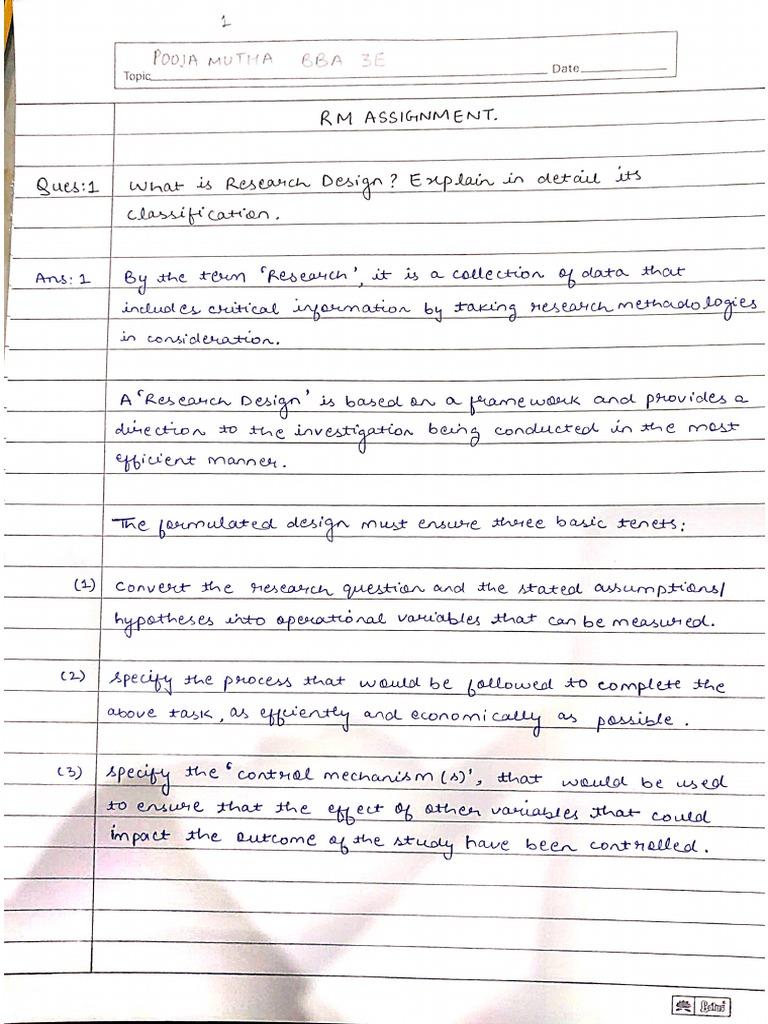 1
POOJA MUTHA BBA 3E
Topic Date
RM ASSIGNMENT.
Ques:1 What is Research Design? Explain in detail its
classification.
Ans: 1 By the term 'Research', it is a collection of data that
includes critical information by taking research methodologies
in consideration.
A 'Research Design' is based on a framework and provides a
direction to the investigation being conducted in the most
efficient manner.
The formulated design must ensure three basic tenets:
(1) Convert the research question and the stated assumptions/
hypotheses into operational variables that can be measured.
(2) Specify the process that would be followed to complete the
above task, as effiently and economically as possible.
(3) Specify the 'control mechanism(s)', that would be used
to ensure that the effect of other variables that could
impact the outcome of the study have been controlled.